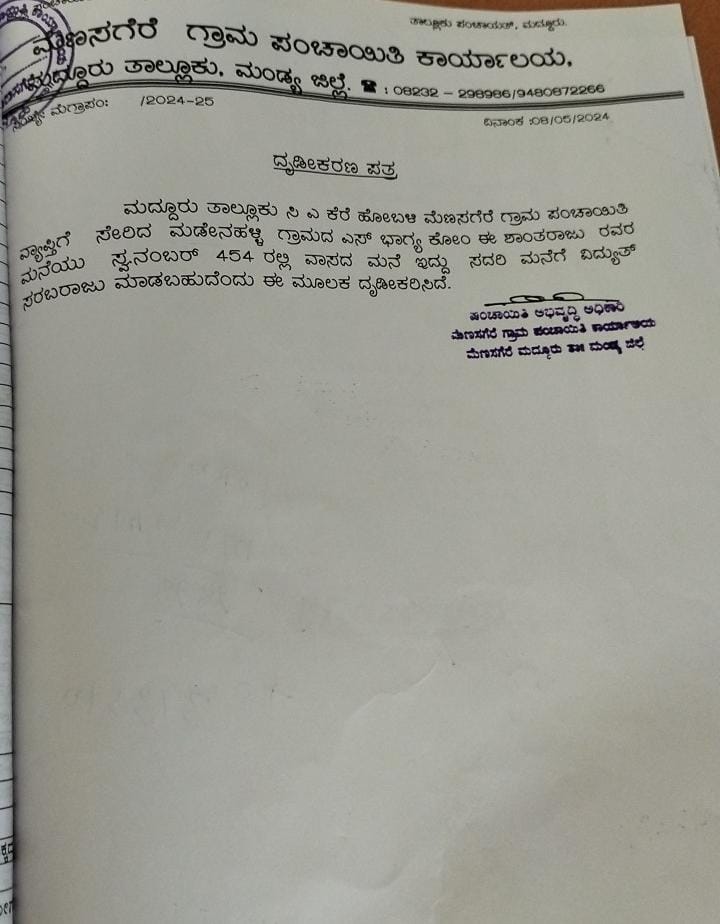 ತಾಲ್ಲೂಕು ಪಂಚಾಯತ್, ಮದ್ದೂರು.
ಮೆಣಸಗೆರೆ ಗ್ರಾಮ ಪಂಚಾಯಿತಿ ಕಾರ್ಯಾಲಯ,
ಮದ್ದೂರು ತಾಲ್ಲೂಕು, ಮಂಡ್ಯ ಜಿಲ್ಲೆ. ☎ : 08232 – 298986/9480872266
ಮಗ್ರಾಪಂ: /2024-25
ದಿನಾಂಕ :08/05/2024
ದೃಡೀಕರಣ ಪತ್ರ
ಮದ್ದೂರು ತಾಲ್ಲೂಕು ಸಿ ಎ ಕೆರೆ ಹೋಬಳಿ ಮೆಣಸಗೆರೆ ಗ್ರಾಮ ಪಂಚಾಯಿತಿ
ವ್ಯಾಪ್ತಿಗೆ ಸೇರಿದ ಮಡೇನಹಳ್ಳಿ ಗ್ರಾಮದ ಎಸ್ ಭಾಗ್ಯ ಕೋಂ ಈ ಶಾಂತರಾಜು ರವರ
ಮನೆಯು ಸ್ವ.ನಂಬರ್ 454 ರಲ್ಲಿ ವಾಸದ ಮನೆ ಇದ್ದು ಸದರಿ ಮನೆಗೆ ವಿದ್ಯುತ್
ಸರಬರಾಜು ಮಾಡಬಹುದೆಂದು ಈ ಮೂಲಕ ದೃಡೀಕರಿಸಿದೆ.
ಪಂಚಾಯಿತಿ ಅಭಿವೃದ್ಧಿ ಅಧಿಕಾರಿ
ಮೆಣಸಗೆರೆ ಗ್ರಾಮ ಪಂಚಾಯಿತಿ ಕಾರ್ಯಾಲಯ
ಮೆಣಸಗೆರೆ ಮದ್ದೂರು ತಾ॥ ಮಂಡ್ಯ ಜಿಲ್ಲೆ